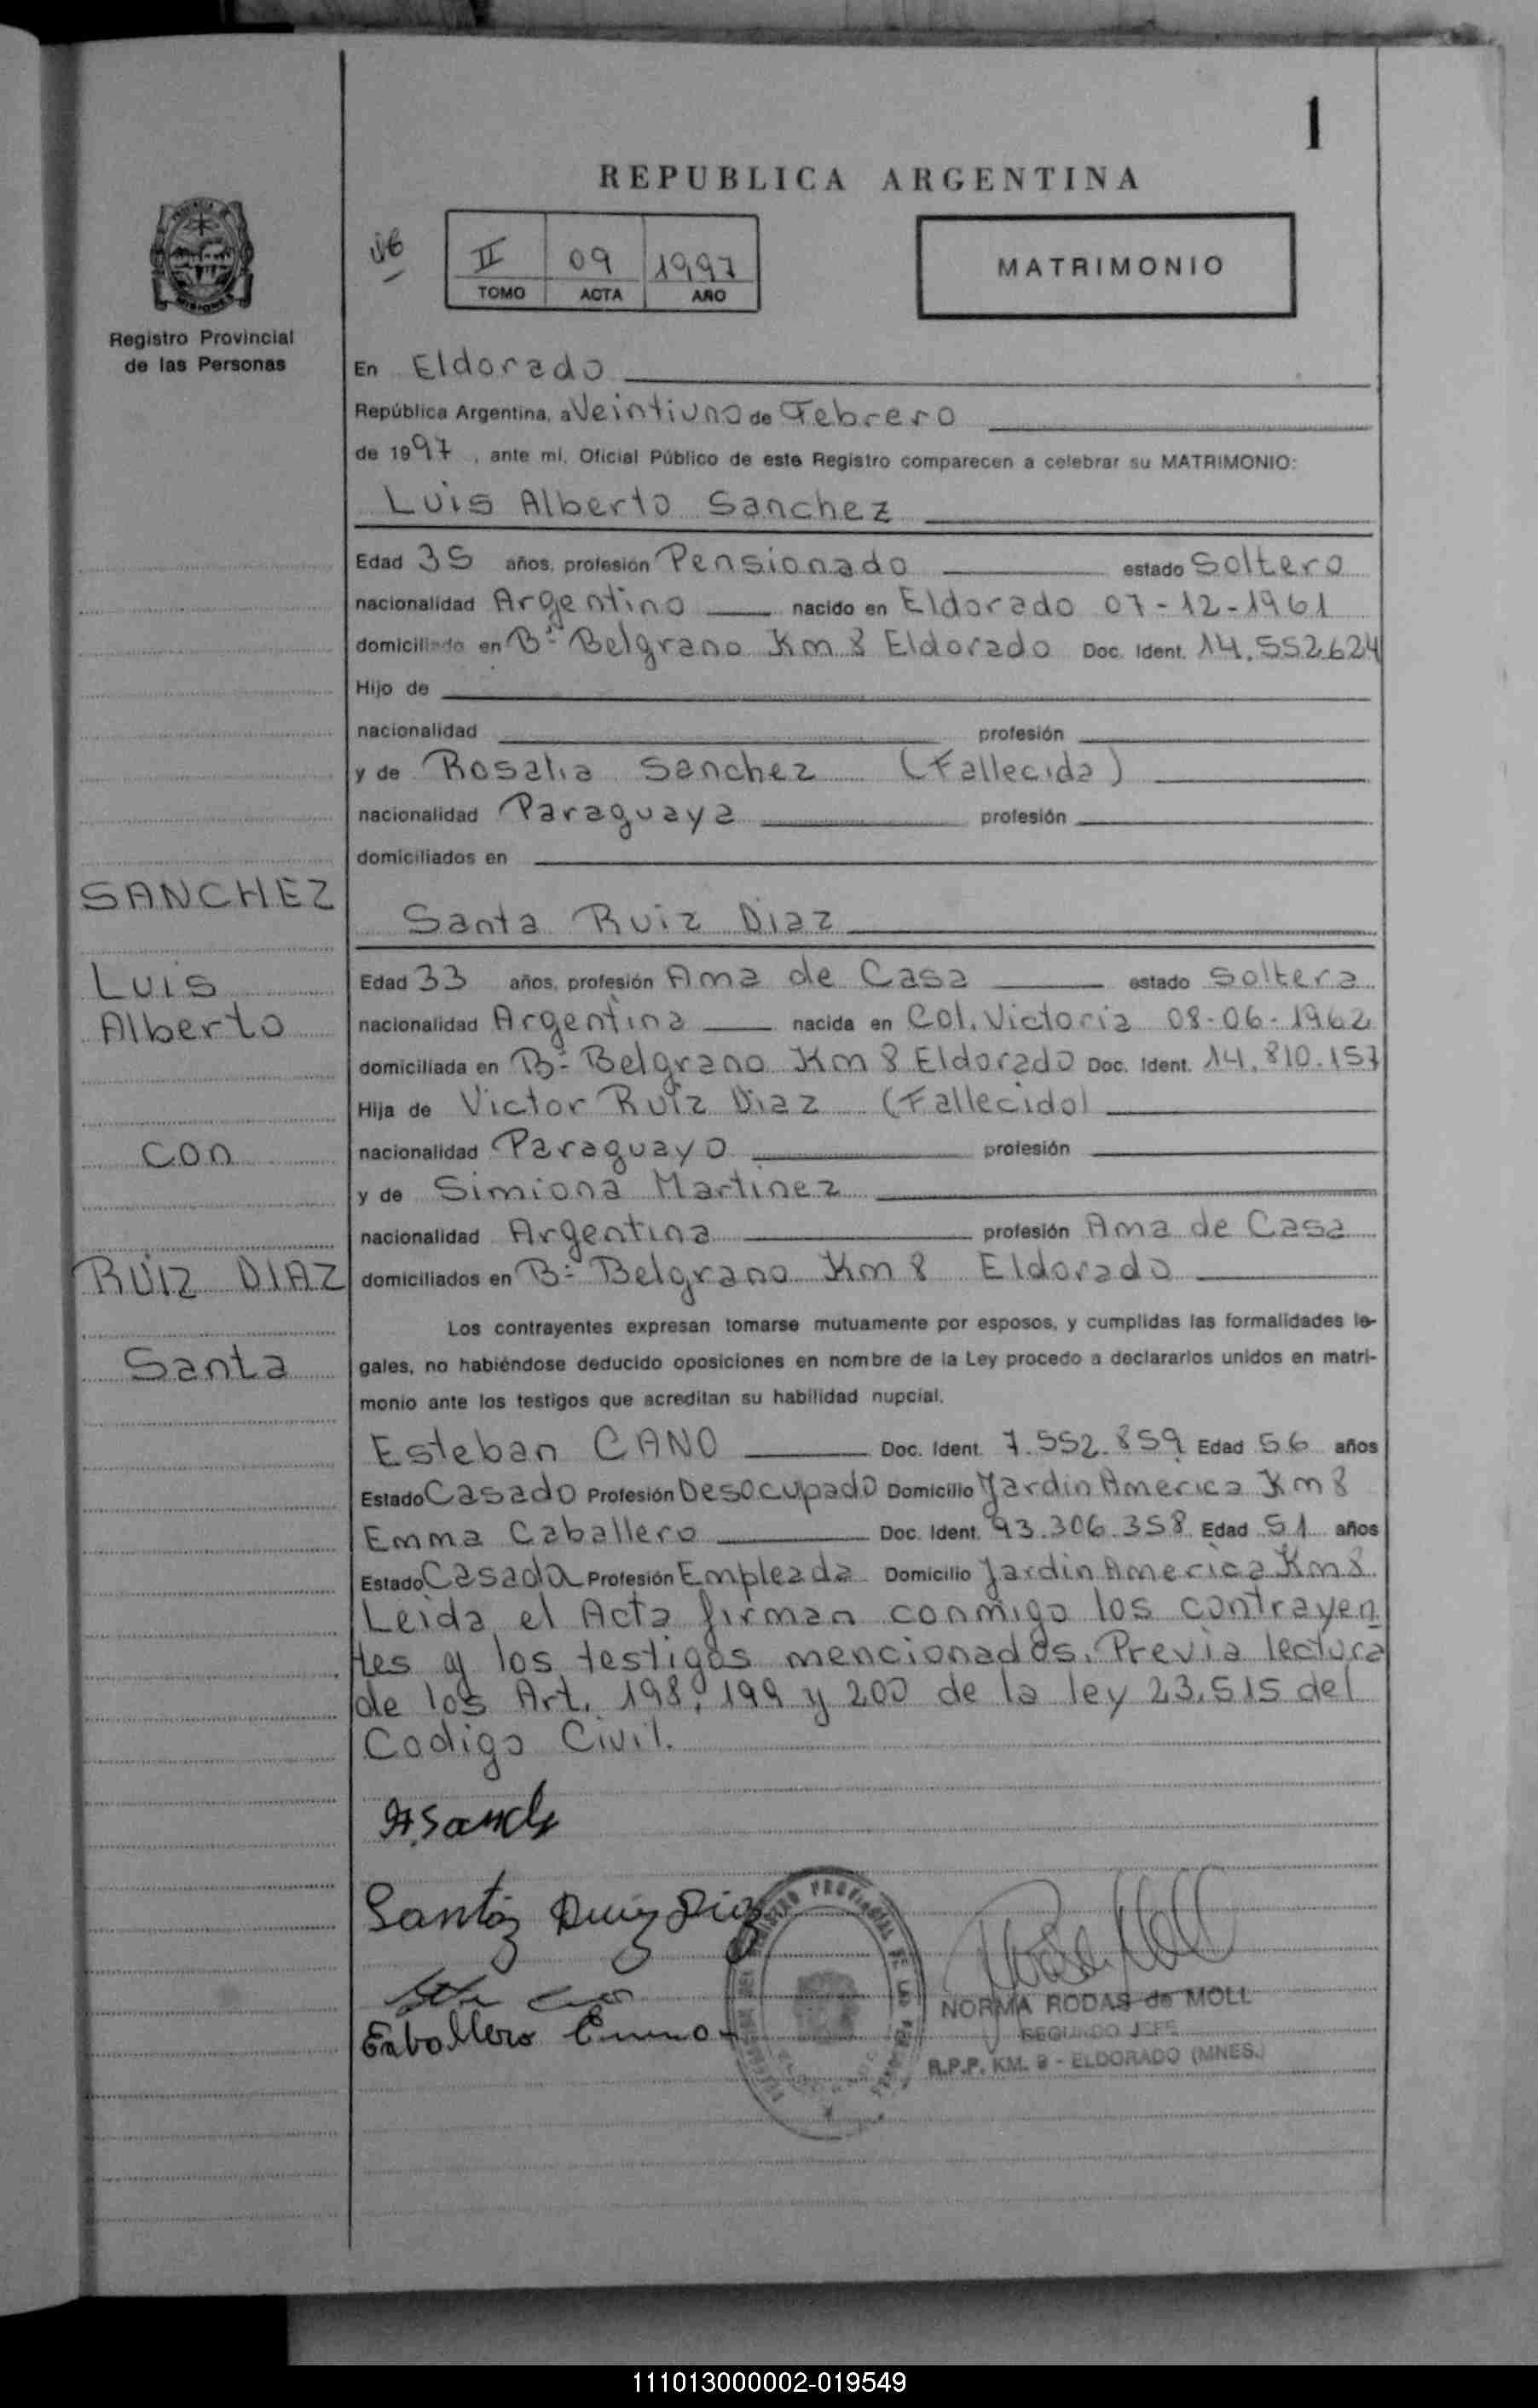 1
REPUBLICA ARGENTINA
II 09 1997
TOMO ACTA AÑO
MATRIMONIO
Registro Provincial
de las Personas
En Eldorado
República Argentina, a Veintiuno de Febrero
de 1997, ante mi, Oficial Público de este Registro comparecen a celebrar su MATRIMONIO:
Luis Alberto Sanchez
Edad 35 años, profesión Pensionado estado Soltero
nacionalidad Argentino nacido en Eldorado 07-12-1961
domiciliado en Bº Belgrano Km 8 Eldorado Doc. Ident. 14.552624
Hijo de
nacionalidad profesión
y de Rosalia Sanchez (Fallecida)
nacionalidad Paraguaya profesión
domiciliados en
SANCHEZ
Luis
Alberto
con
RUIZ DIAZ
Santa
Santa Ruiz Diaz
Edad 33 años, profesión Ama de Casa estado Soltera
nacionalidad Argentina nacida en Col. Victoria 08-06-1962
domiciliada en Bº Belgrano Km 8 Eldorado Doc. Ident. 14.810.157
Hija de Victor Ruiz Diaz (Fallecido)
nacionalidad Paraguayo profesión
y de Simiona Martinez
nacionalidad Argentina profesión Ama de Casa
domiciliados en Bº Belgrano Km 8 Eldorado
Los contrayentes expresan tomarse mutuamente por esposos, y cumplidas las formalidades le-
gales, no habiéndose deducido oposiciones en nombre de la Ley procedo a declararlos unidos en matri-
monio ante los testigos que acreditan su habilidad nupcial.
Esteban CANO Doc. Ident. 7.552.859 Edad 56 años
Estado Casado Profesión Desocupado Domicilio Jardin America Km 8
Emma Caballero Doc. Ident. 93.306.358 Edad 51 años
Estado Casada Profesión Empleada Domicilio Jardin America Km 8
Leida el Acta firman conmigo los contrayen
tes y los testigos mencionados. Previa lectura
de los Art. 198, 199 y 200 de la ley 23.515 del
Codigo Civil.
Santa Ruiz Diaz
Caballero Emma
NORMA RODAS de MOLL
SEGUNDO JEFE
R.P.P. KM. 9 - ELDORADO (MNES.)
111013000002-019549